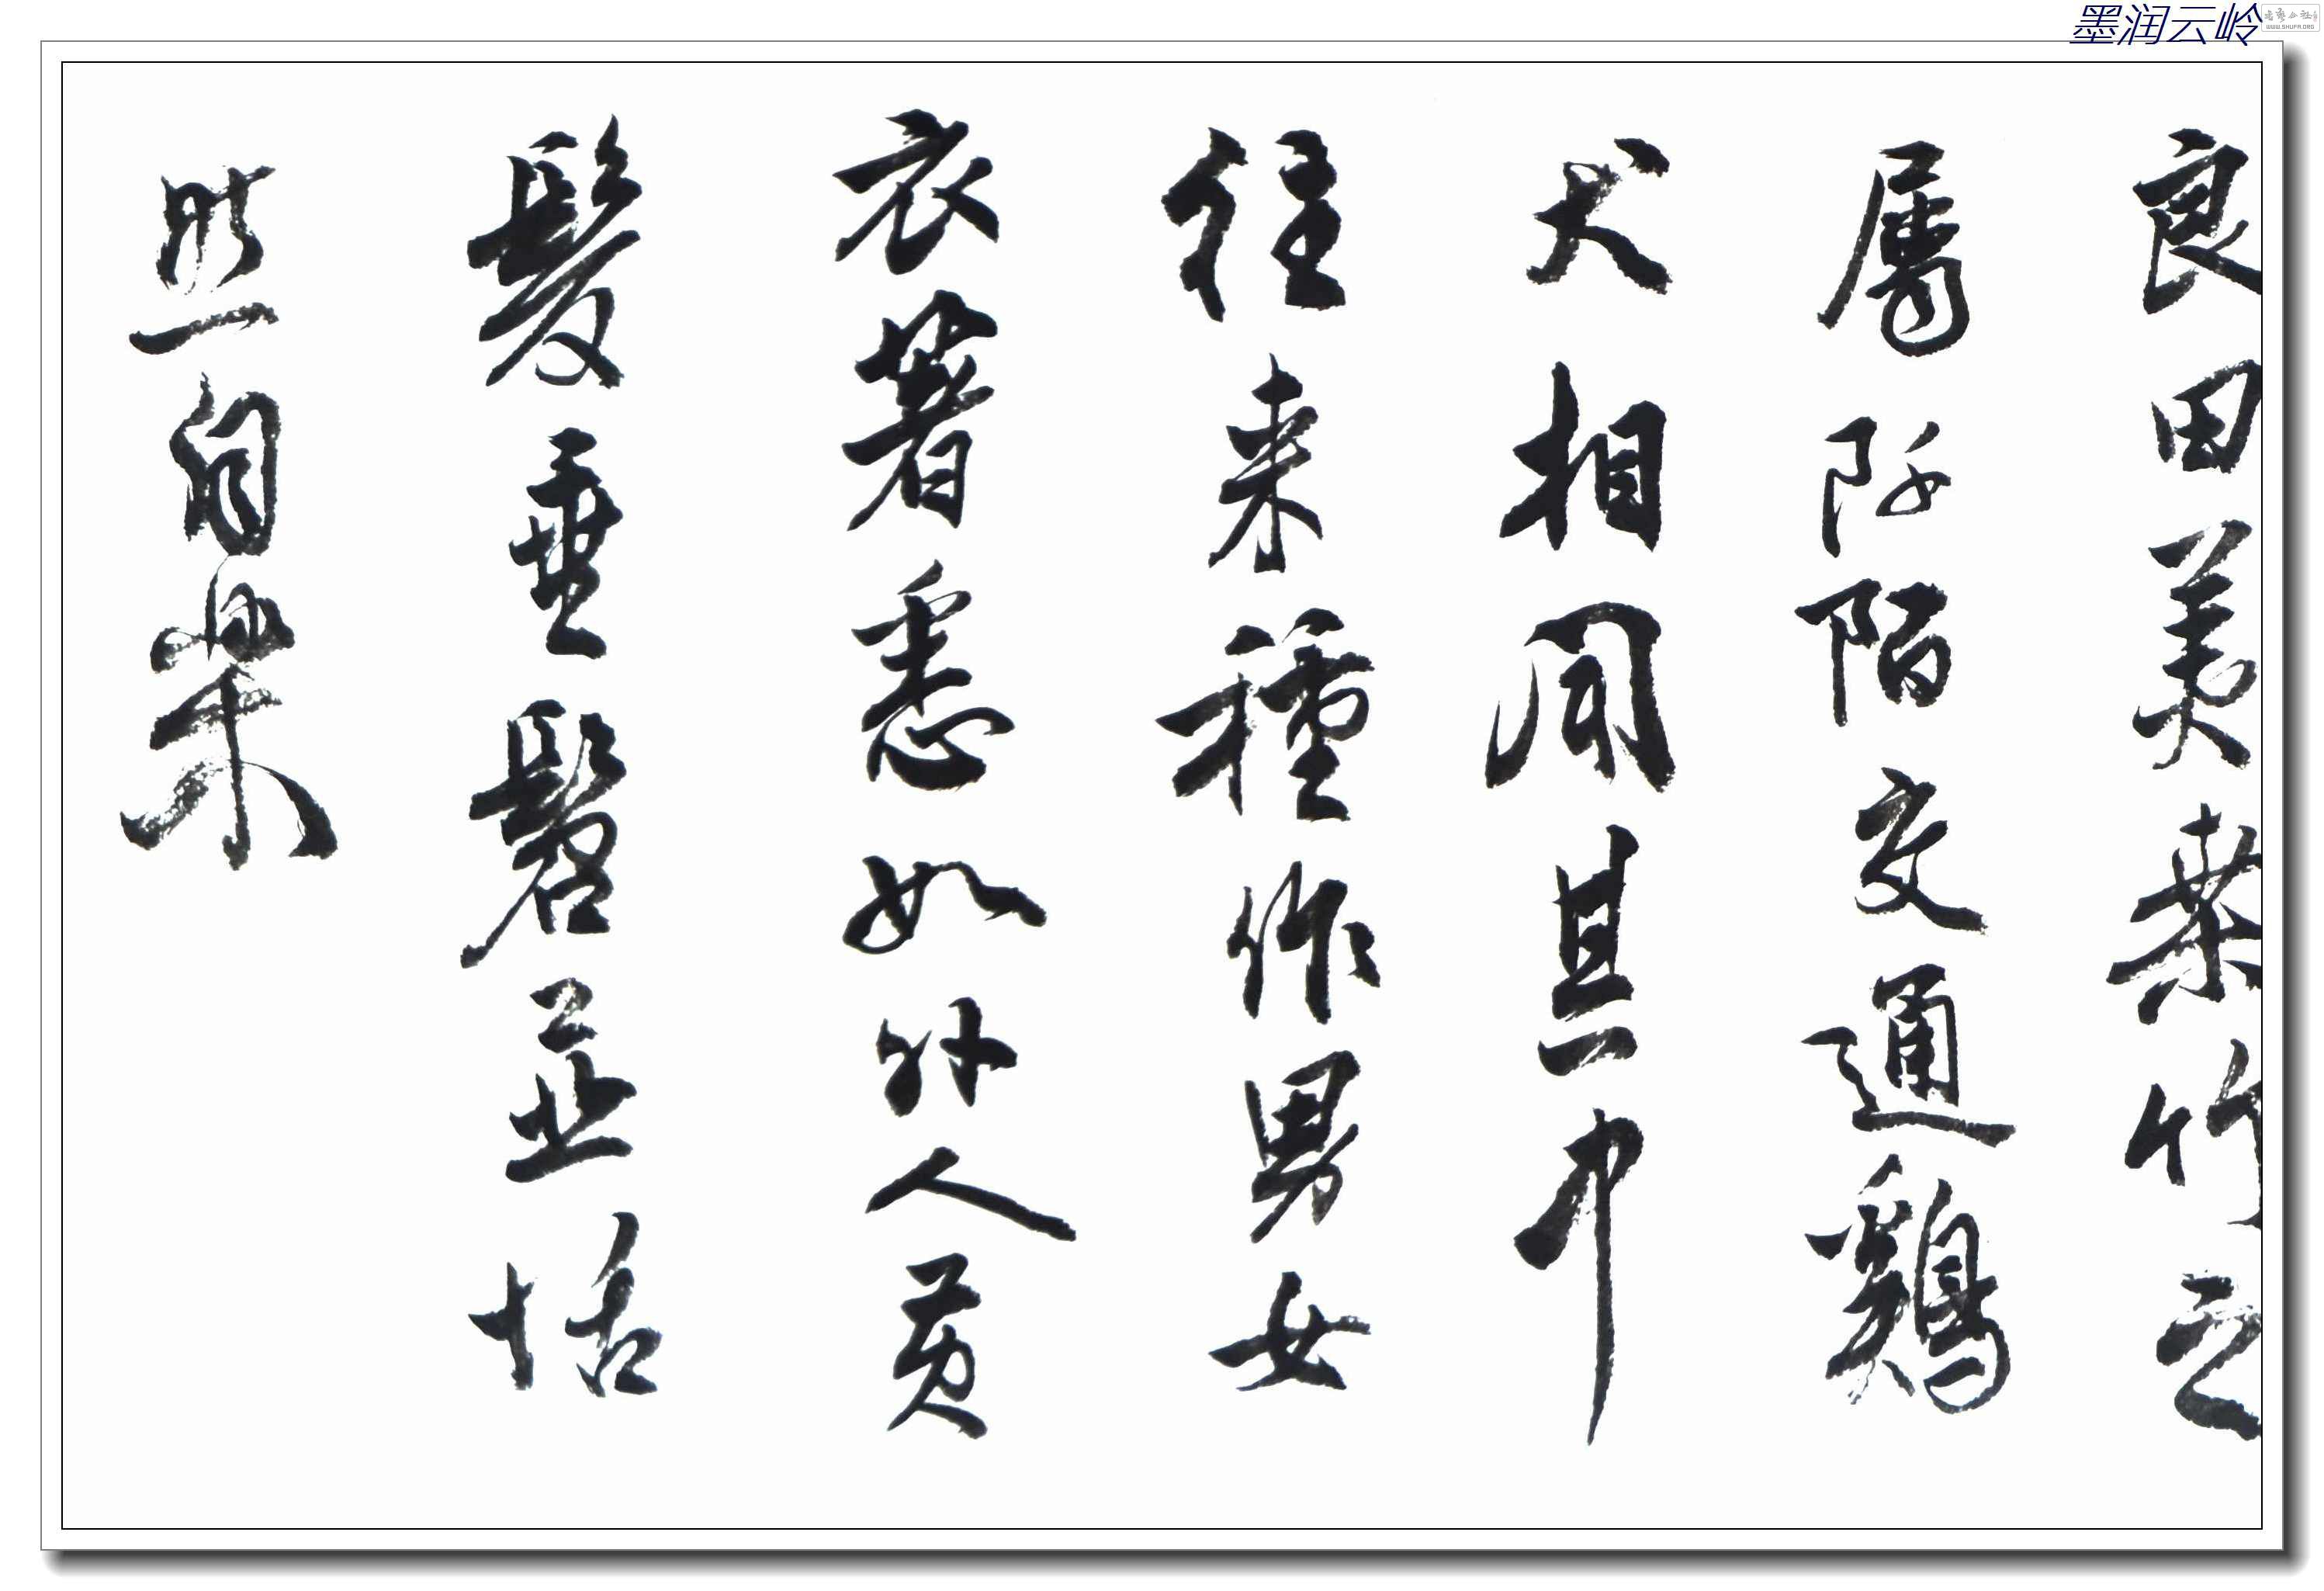 墨润云岭
WWW.SHUFA.ORG
良田美桑竹之
属阡陌交通鷄
犬相闻其中
往来種作男女
衣著悉如外人黄
髮垂髫並怡
然自樂